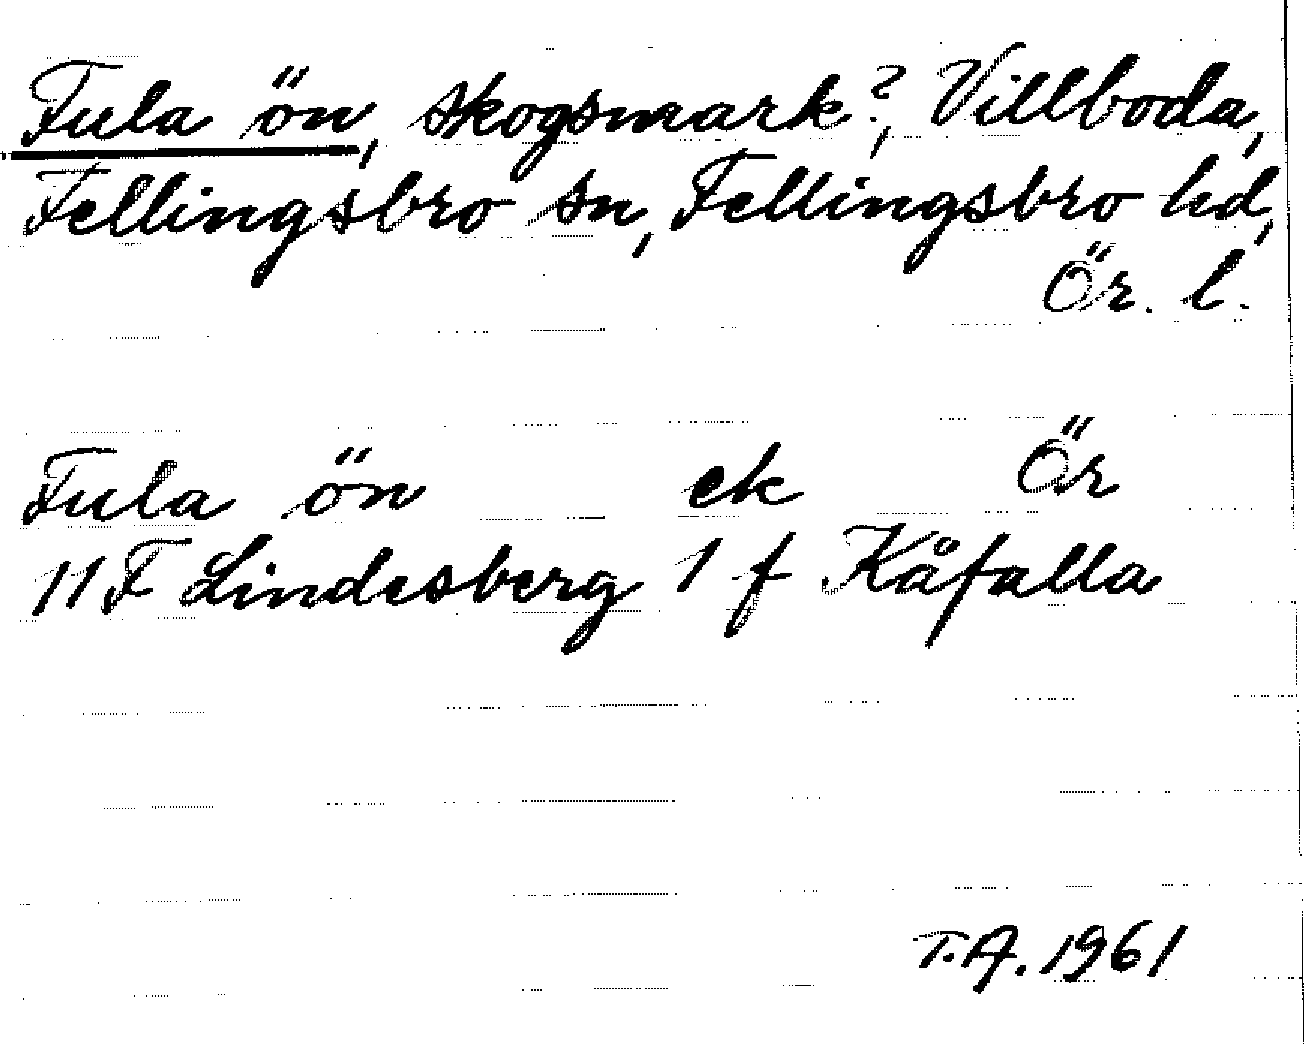 Fula ön, skogsmark?, Villboda,
Fellingsbro sn, Fellingsbro hd,
Ör. l.
Fula ön ek Ör
11 F Lindesberg 1 f Kåfalla
T.A. 1961